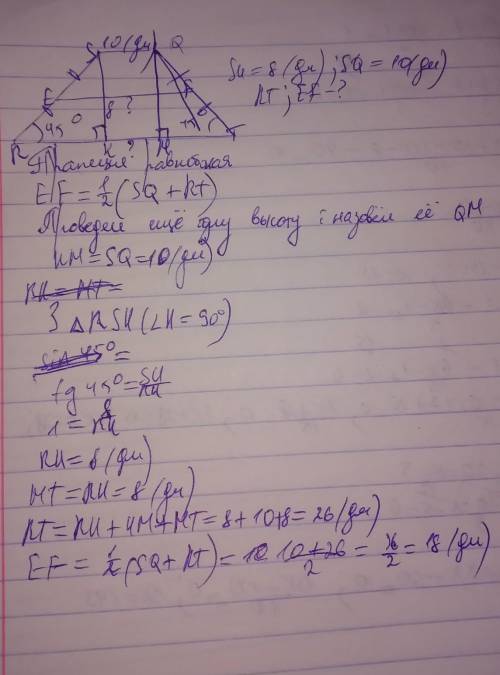 S 10(дм) Q
E 8 ? F
45°
R H M T
SH = 8 (дм) ; SQ = 10(дм)
RT ; EF - ?
Трапеция равнобокая
EF = 1/2 (SQ + RT)
Проведем ещё одну высоту і назовём её QM
HM = SQ = 10(дм)
RH = MT =
З △RSH (∠H = 90°)
sin 45° =
tg 45° = SH/RH
1 = 8/RH
RH = 8 (дм)
MT = RH = 8 (дм)
RT = RH + HM + MT = 8 + 10 + 8 = 26 (дм)
EF = 1/2 (SQ + RT) = 10 + 26/2 = 36/2 = 18 (дм)